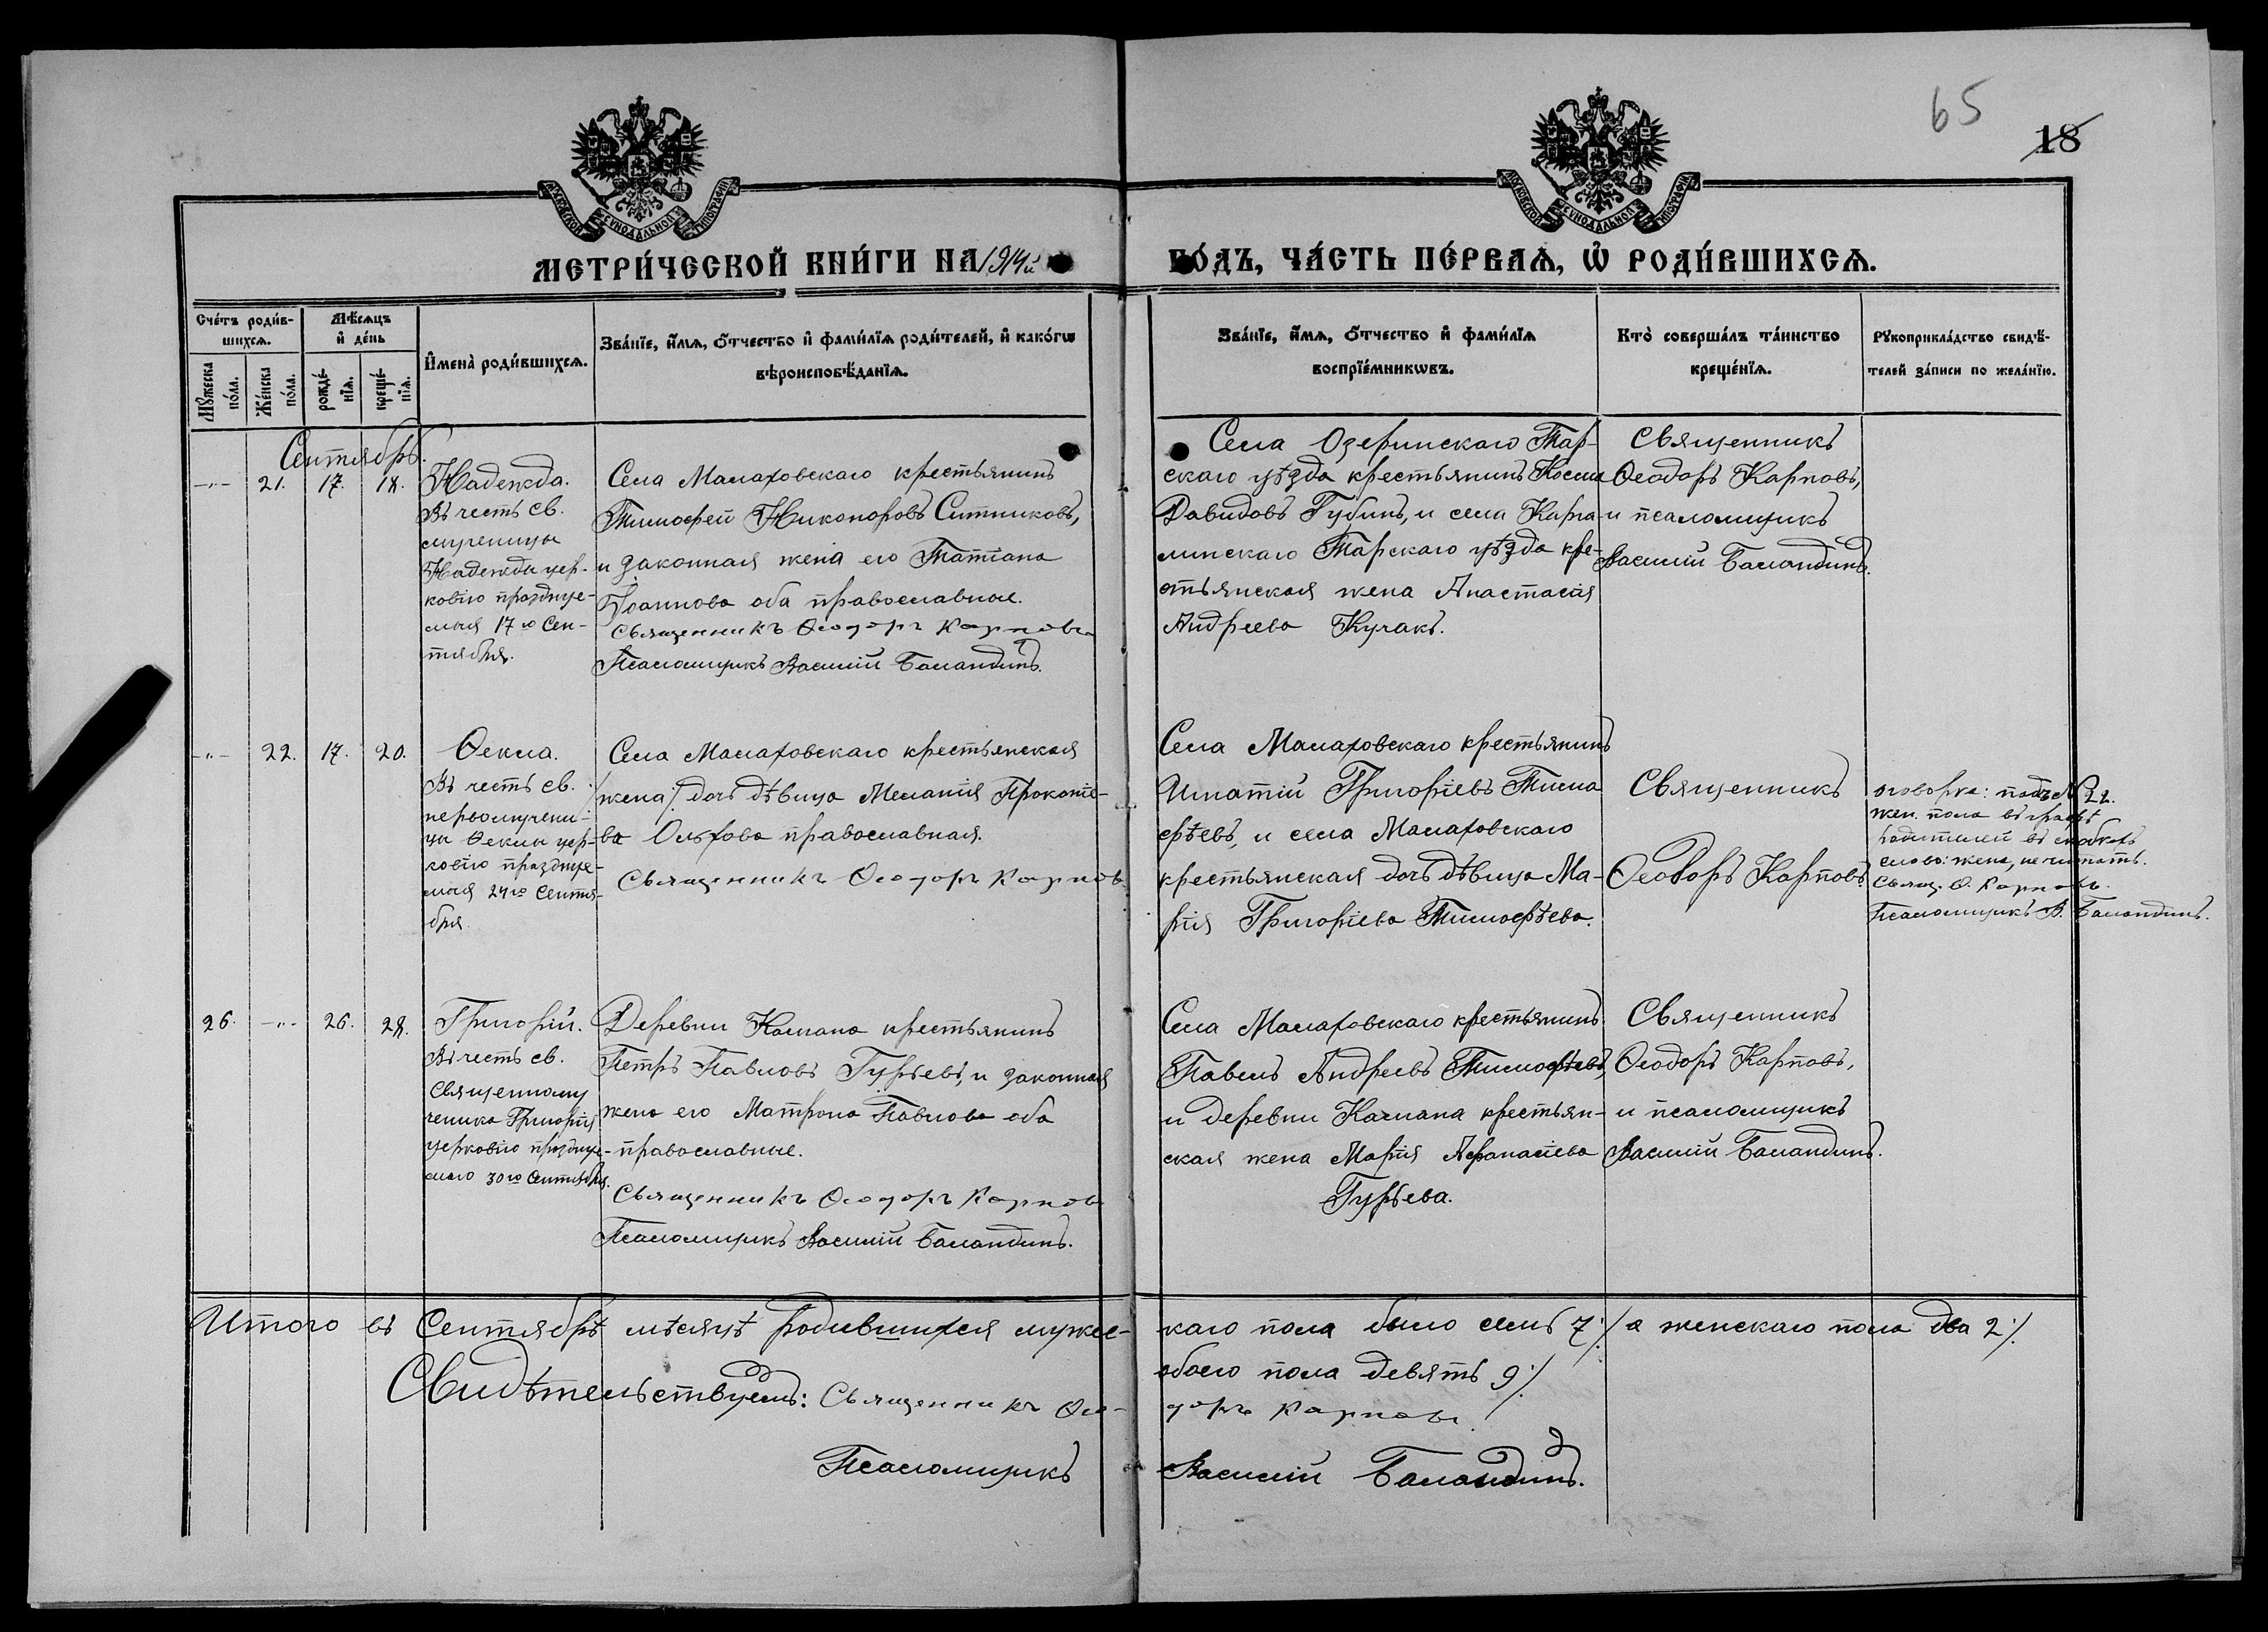 65
18
МОСКОВСКОЙ СУНОДАЛЬНОЙ ТИПОГРАФІИ
МОСКОВСКОЙ СУНОДАЛЬНОЙ ТИПОГРАФІИ
МЕТРИ́ЧЕСКОЙ КНИ́ГИ НА 1914й
ГО́ДЪ, ЧА́СТЬ ПЕ́РВАѦ, Ѡ҆ РОДИ́ВШИХСѦ.
Сче́тъ роди́в-
шихсѧ.
Мꙋ́жеска по́ла.
Же́нска по́ла.
Мѣ́сѧцъ
и҆ де́нь
рожде́-
нїѧ.
креще́-
нїѧ.
И҆мена̀ роди́вшихсѧ.
Зва́нїе, и҆́мѧ, ѻ҆́тчество и҆ фами́лїѧ роди́телей, и҆ како́гѡ
вѣроисповѣ́данїѧ.
Зва́нїе, и҆́мѧ, ѻ҆́тчество и҆ фами́лїѧ
воспрїе́мникѡвъ.
Кто̀ соверша́лъ та́инство
креще́нїѧ.
Рꙋкоприкла́дство свидѣ́-
телей за́писи по жела́нїю.
Сентябрь.
-"- 21. 17. 18.
Надежда.
Въ честь св.
мученицы
Надежды цер-
ковію празднуе-
мыя 17го Сен-
тября.
Села Малаховскаго крестьянинъ
Тимофей Никоноровъ Ситниковъ,
и законная жена его Татіана
Іоаннова оба православные.
Священникъ Ѳеодоръ Карповъ
Псаломщикъ Василій Баландинъ.
Села Озеринскаго Тар-
скаго уѣзда крестьянинъ Косма
Давидовъ Губинъ, и села Карга-
линскаго Тарскаго уѣзда кре-
стьянская жена Анастасія
Андреева Кучакъ.
Священникъ
Ѳеодоръ Карповъ,
и псаломщикъ
Василій Баландинъ.
-"- 22. 17. 20.
Ѳекла.
Въ честь св.
первомучени-
цы Ѳеклы цер-
ковію празднуе-
мыя 24го Сентя-
бря.
Села Малаховскаго крестьянская
/жена/ дочь дѣвица Меланія Прокопіе-
ва Ольхова православная.
Священникъ Ѳеодоръ Карповъ
Села Малаховскаго крестьянинъ
Игнатій Григоріевъ Тимо
фѣевъ, и села Малаховскаго
крестьянская дочь дѣвица Ма-
рія Григоріева Тимофѣева.
Священникъ
Ѳеодоръ Карповъ
оговорка: подъ №22.
жен. пола въ графѣ
родителей въ скобкахъ
слово: жена, не читать.
Свящ. Ѳ. Карповъ.
Псаломщикъ В. Баландинъ.
26. -"- 26. 28.
Григорій.
Въ честь св.
Священному
ченика Григорія
церковію празднуе-
маго 30го Сентября.
Деревни Кашана крестьянинъ
Петръ Павловъ Гурьевъ, и законная
жена его Матрона Павлова оба
православные.
Священникъ Ѳеодоръ Карповъ
Псаломщикъ Василій Баландинъ.
Села Малаховскаго крестьянинъ
Павелъ Андреевъ Тимофѣевъ,
и деревни Кашана крестьян-
ская жена Марія Афанасіева
Гурьева.
Священникъ
Ѳеодоръ Карповъ,
и псаломщикъ
Василій Баландинъ.
Итого въ Сентябрѣ мѣсяцѣ родившихся мужес-
каго пола было семь 7·/. а женскаго пола два 2·/.
обоего пола девять 9·/.
Свидѣтельствуемъ: Священникъ Ѳео-
доръ Карповъ.
Псаломщикъ
Василій Баландинъ.